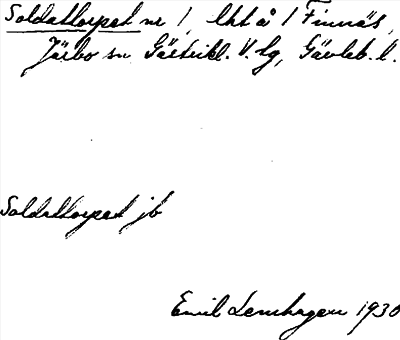 Soldattorpet nr 1, lht å 1 Finnäs,
Järbo sn Gästrikl. V. tg, Gävleb. l.
Soldattorpet jb
Emil Lernhagen 1930